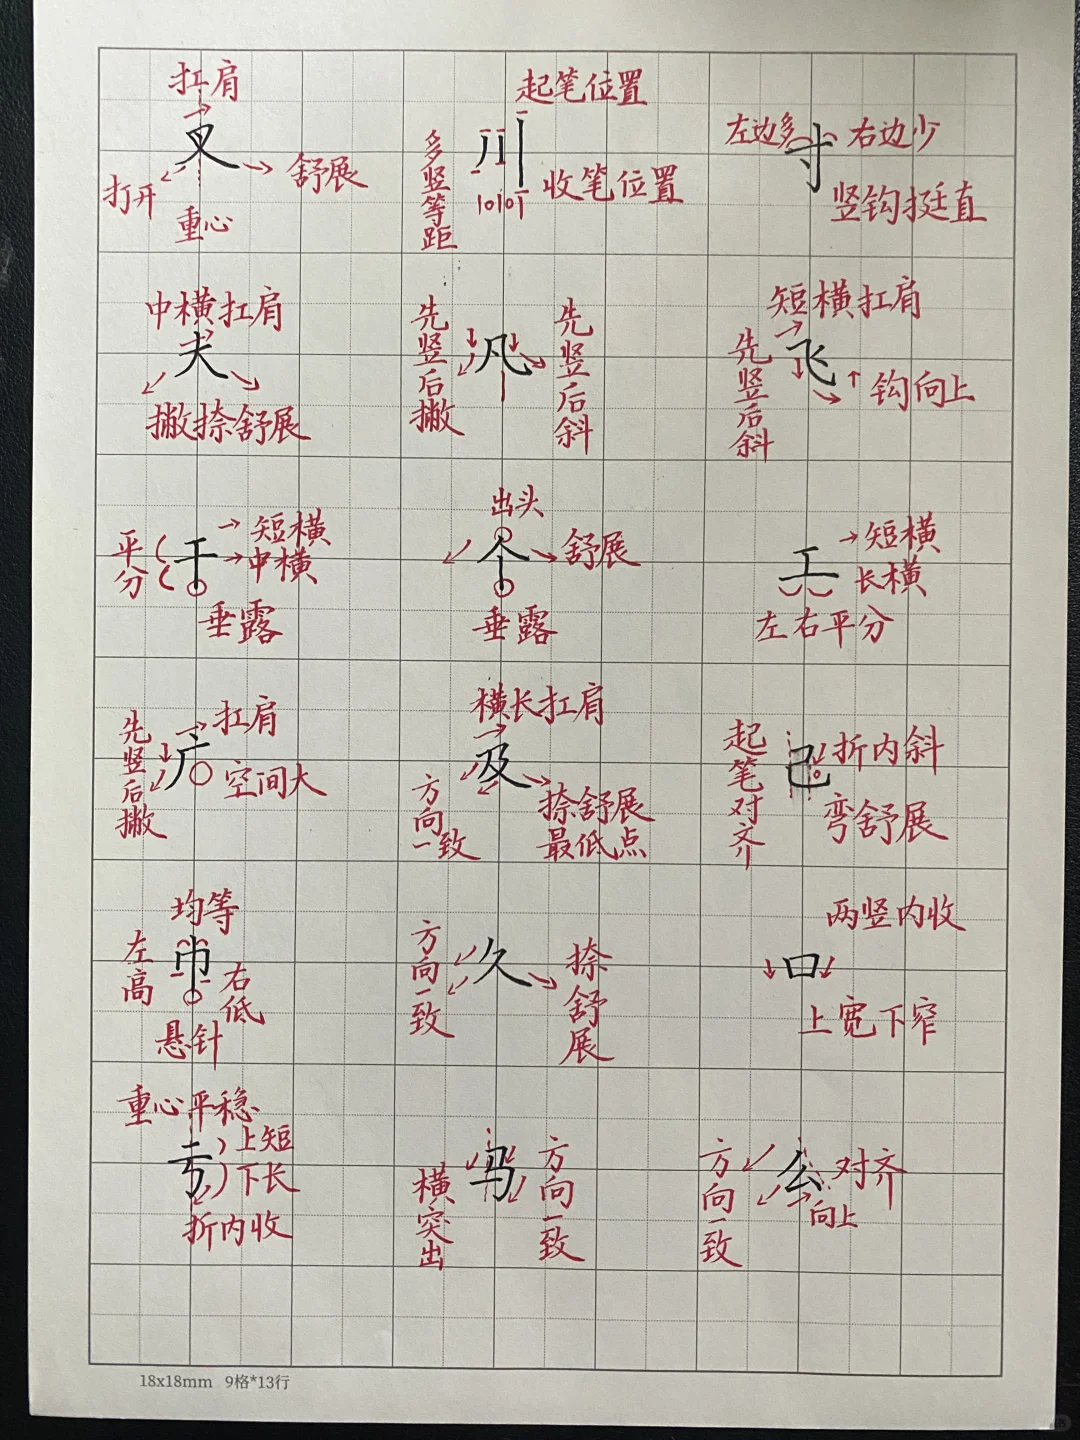 扛肩
叉
打开
舒展
重心
起笔位置
川
多竖等距
收笔位置
左边多
寸
右边少
竖钩挺直
中横扛肩
夫
撇捺舒展
先竖后撇
凡
先竖后斜
短横扛肩
先竖后斜
飞
钩向上
平分
干
短横
中横
垂露
出头
个
舒展
垂露
工
短横
长横
左右平分
先竖后撇
广
扛肩
空间大
横长扛肩
及
方向一致
捺舒展
最低点
起笔对齐
己
折内斜
弯舒展
均等
左高
巾
右低
悬针
方向一致
久
捺舒展
两竖内收
口
上宽下窄
重心平稳
亏
上短
下长
折内收
横突出
马
方向一致
方向一致
么
对齐
向上
18x18mm 9格*13行